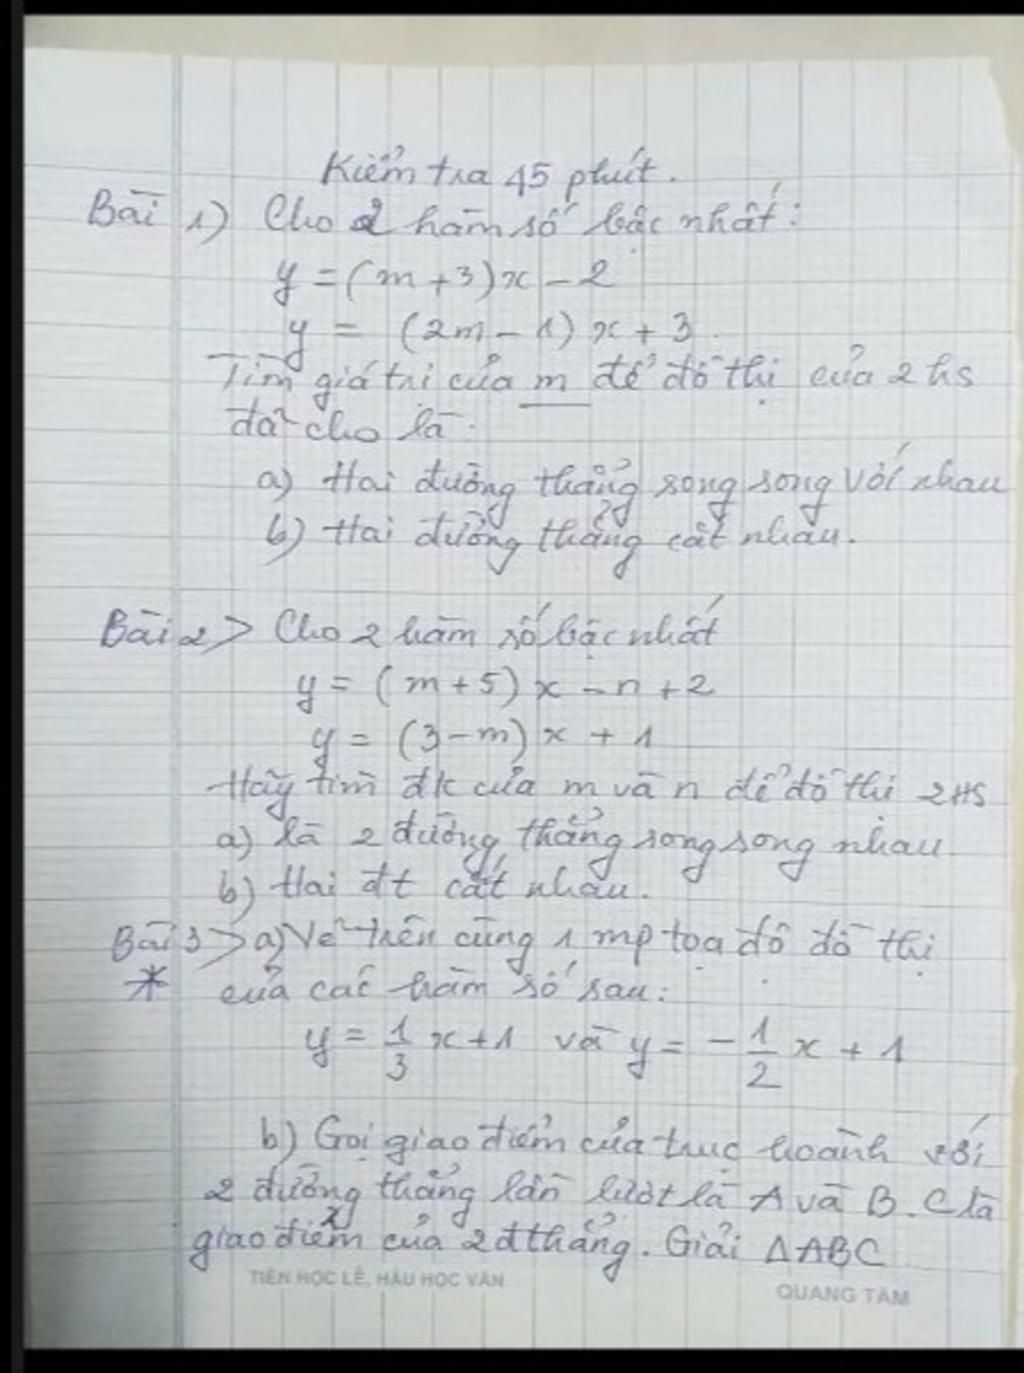 Kiểm tra 45 phút.
Bài 1) Cho 2 hàm số bậc nhất:
y = (m + 3)x - 2
y = (2m - 1) x + 3
Tìm giá trị của m để đồ thị của 2 hs
đã cho là:
a) Hai đường thẳng song song với nhau
b) Hai đường thẳng cắt nhau.
Bài 2> Cho 2 hàm số bậc nhất
y = (m + 5) x - n + 2
y = (3 - m) x + 1
Hãy tìm đk của m và n để đồ thị 2 HS
a) là 2 đường thẳng song song nhau
b) Hai đt cắt nhau.
Bài 3> a) Vẽ trên cùng 1 mp tọa độ đồ thị
* của các hàm số sau:
y = 1/3 x + 1 và y = - 1/2 x + 1
b) Gọi giao điểm của trục hoành với
2 đường thẳng lần lượt là A và B. C là
giao điểm của 2 đthẳng. Giải ΔABC
TIÊN HỌC LỄ, HẬU HỌC VĂN QUANG TÂM